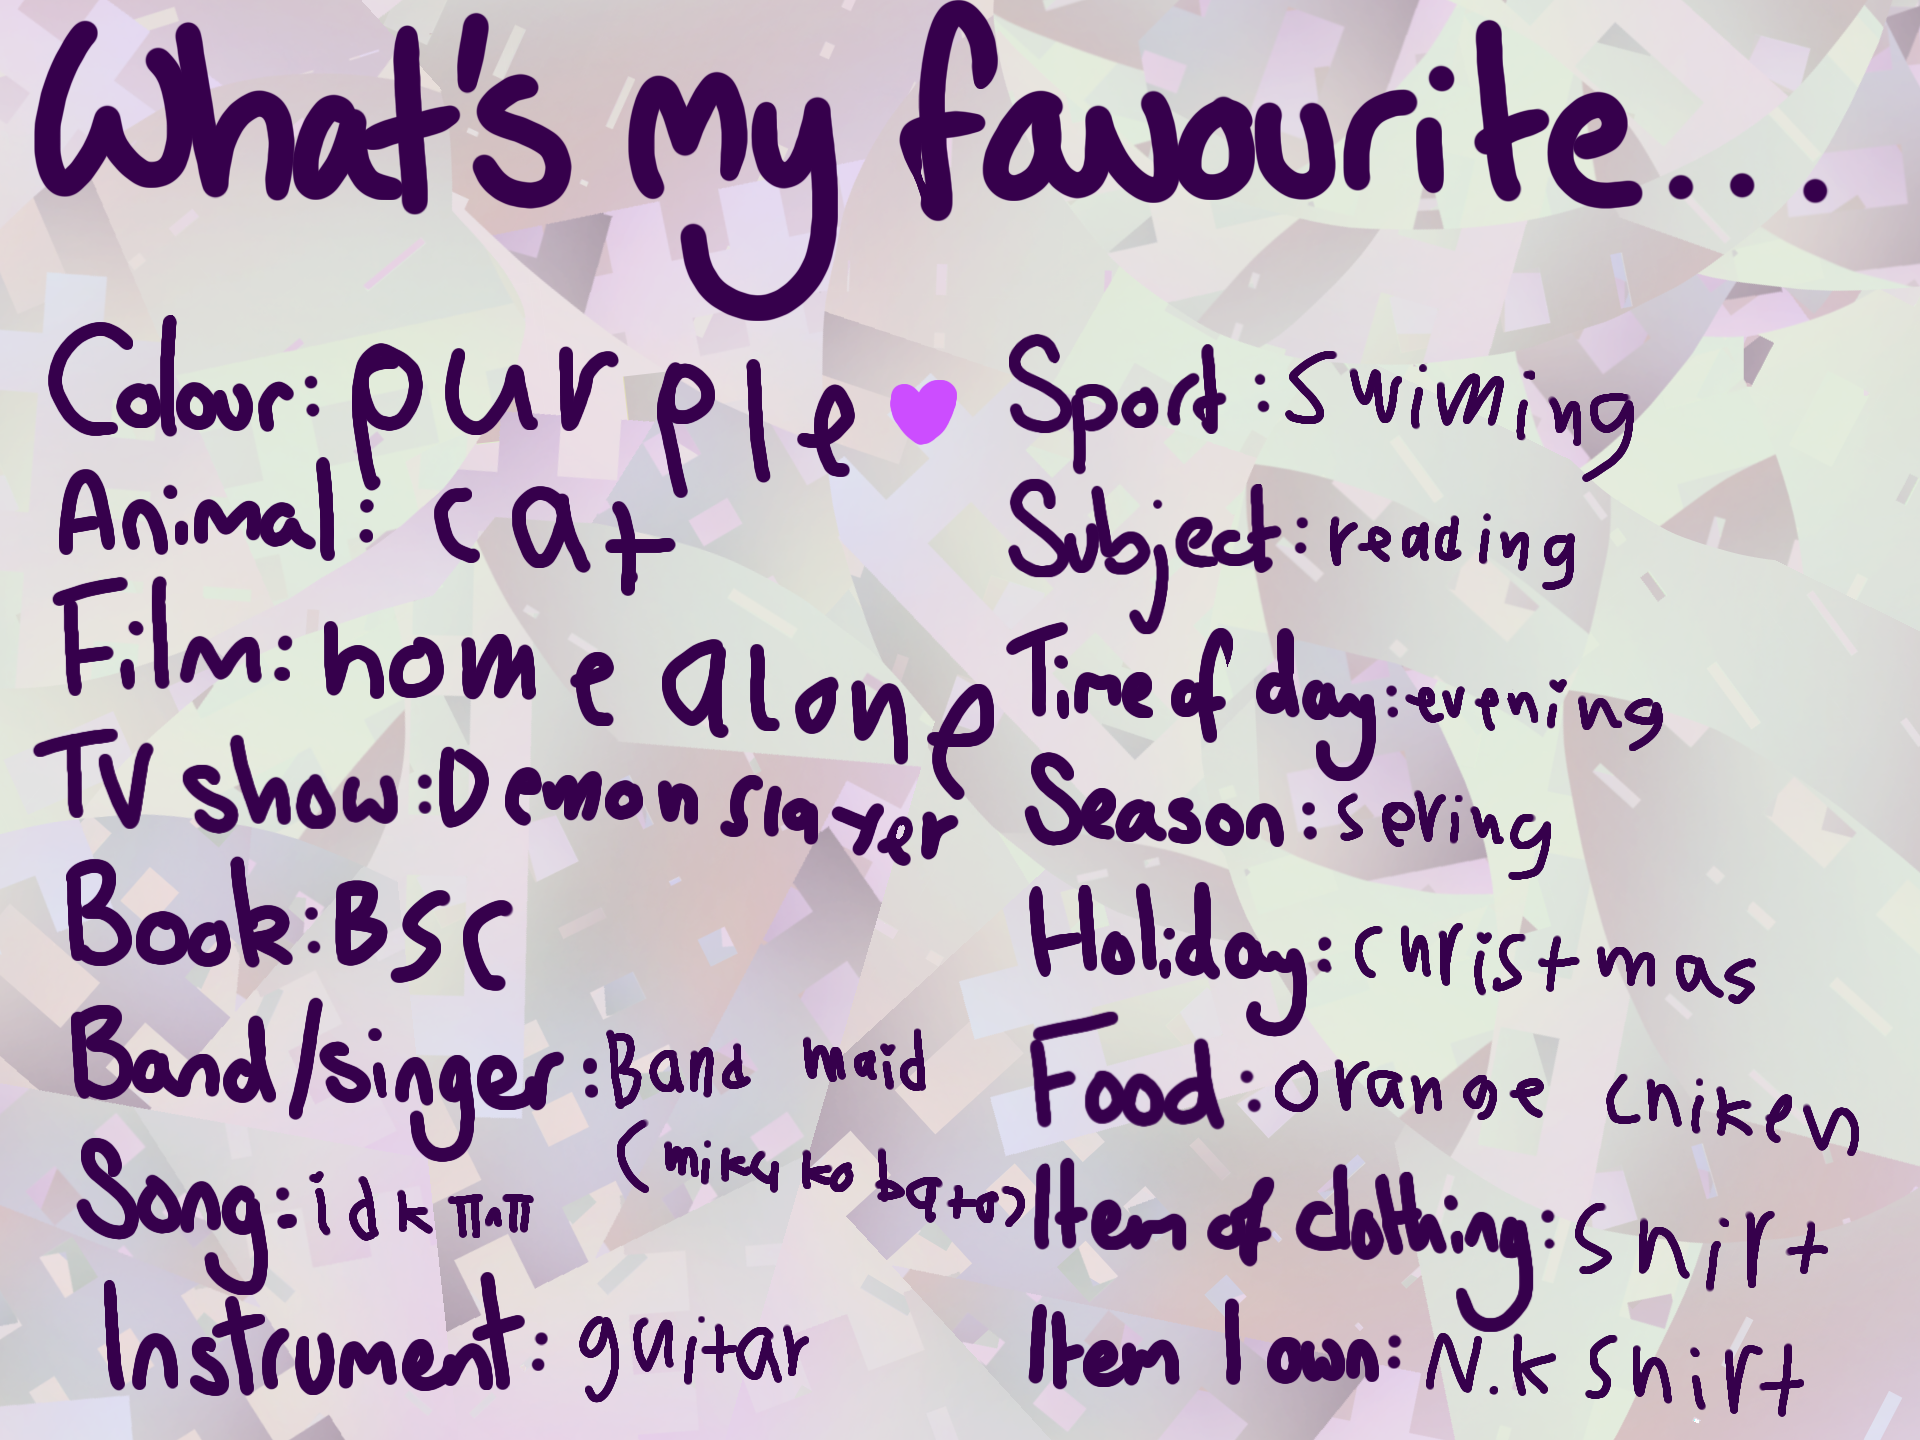 What's my favourite...
Colour: purple
Animal: cat
Film: home alone
TV show: Demon slayer
Book: BSC
Band/singer: Band maid
(miku kobato)
Song: idk
Instrument: guitar
Sport: Swiming
Subject: reading
Time of day: evening
Season: sering
Holiday: christmas
Food: orange chiken
Item of clothing: shirt
Item I own: N.K shirt